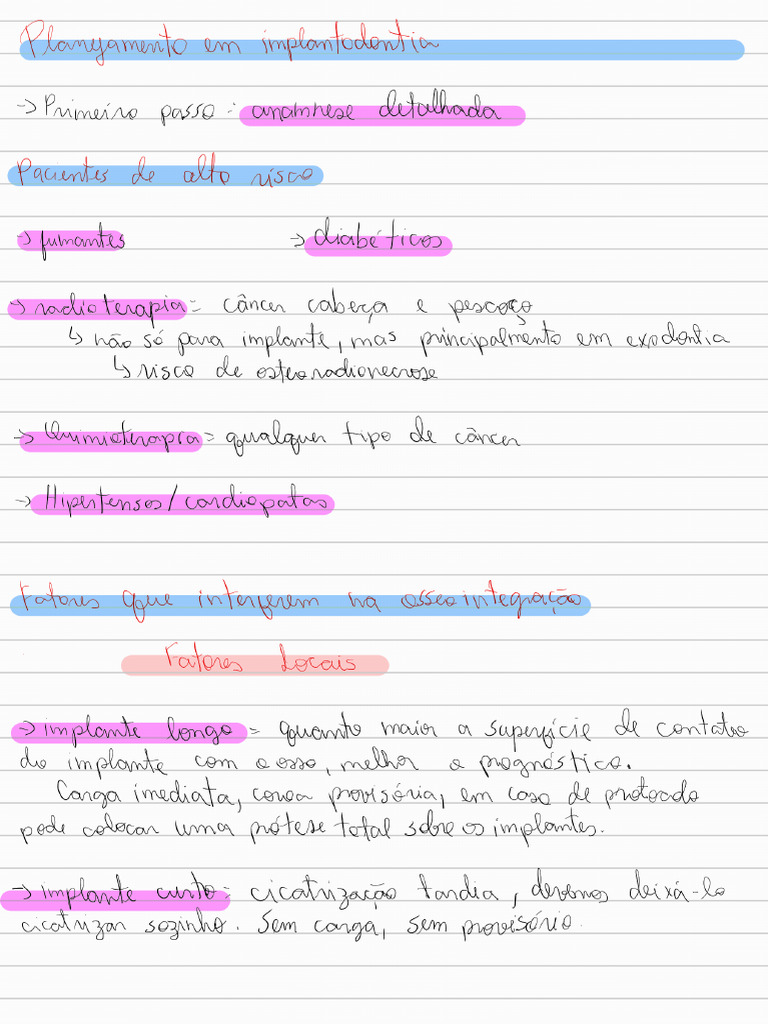 Planejamento em implantodontia
-> Primeiro passo: anamnese detalhada
Pacientes de alto risco
-> fumantes -> diabéticos
-> radioterapia = câncer cabeça e pescoço
↳ não só para implante, mas principalmento em exodontia
↳ risco de osteoradionecrose
-> Quimioterapia = qualquer tipo de câncer
-> Hipertensos/cardiopatas
Fatores que interferem na osseointegração
Fatores Locais
-> implante longo = quanto maior a superfície de contato
do implante com o osso, melhor o prognóstico.
Carga imediata, coroa provisória, em caso de protocolo
pode colocar uma prótese total sobre os implantes.
-> implante curto = cicatrização tardia, devemos deixá-lo
cicatrizar sozinho. Sem carga, sem provisório.